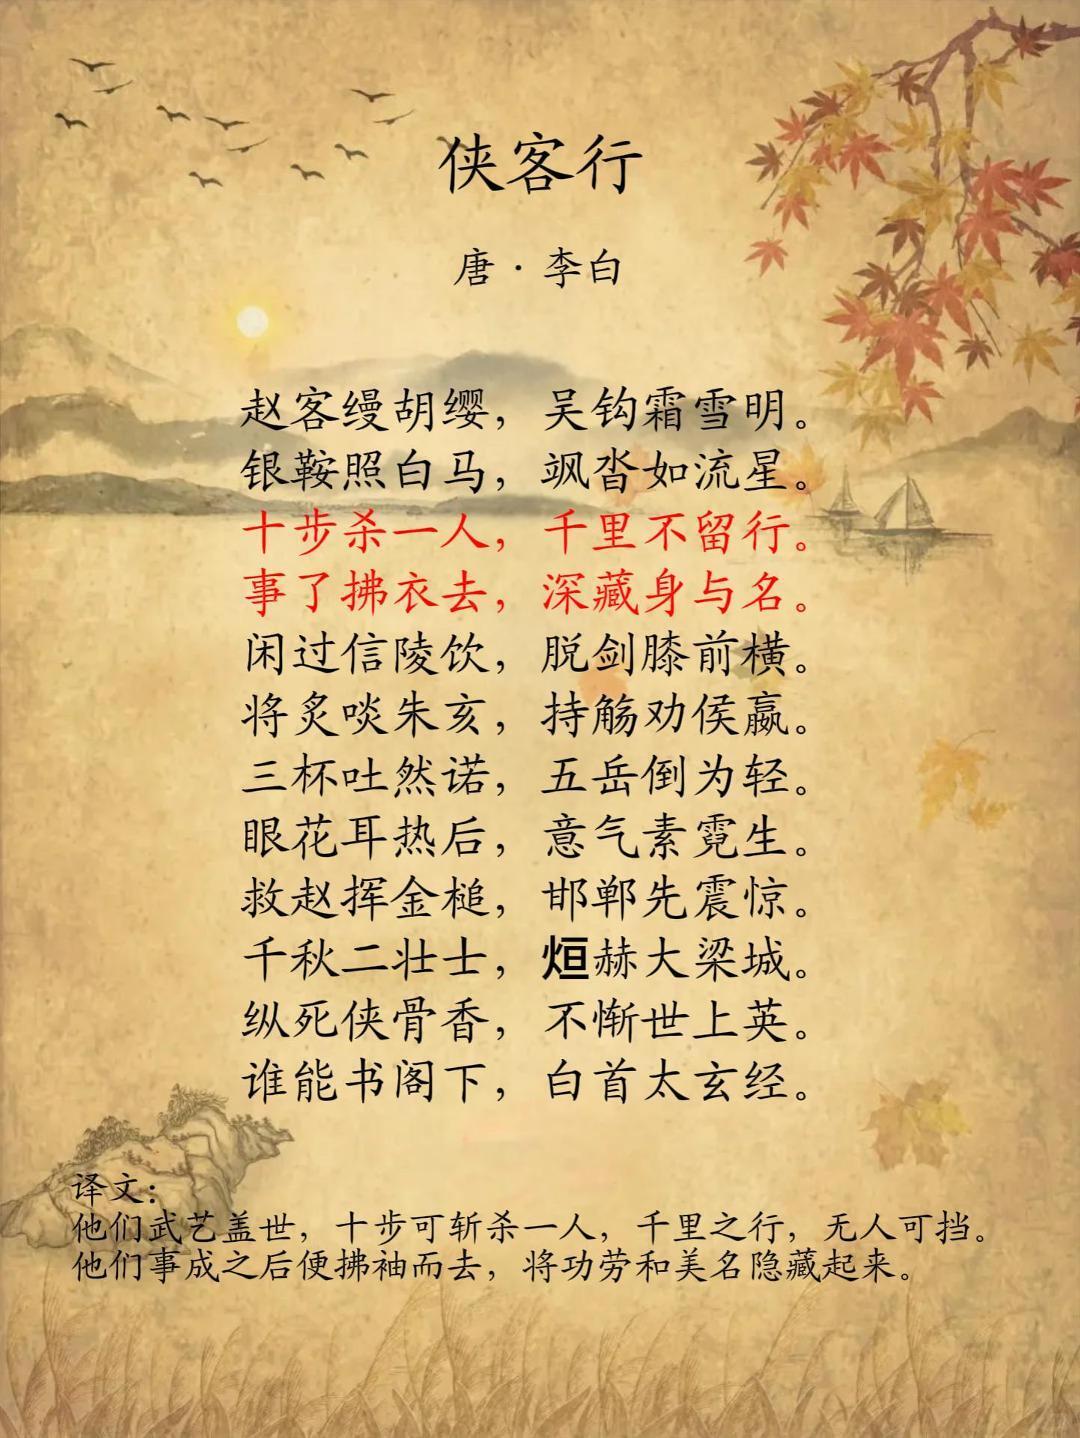 侠客行
唐·李白
赵客缦胡缨，吴钩霜雪明。
银鞍照白马，飒沓如流星。
十步杀一人，千里不留行。
事了拂衣去，深藏身与名。
闲过信陵饮，脱剑膝前横。
将炙啖朱亥，持觞劝侯嬴。
三杯吐然诺，五岳倒为轻。
眼花耳热后，意气素霓生。
救赵挥金槌，邯郸先震惊。
千秋二壮士，烜赫大梁城。
纵死侠骨香，不惭世上英。
谁能书阁下，白首太玄经。
译文：
他们武艺盖世，十步可斩杀一人，千里之行，无人可挡。
他们事成之后便拂袖而去，将功劳和美名隐藏起来。